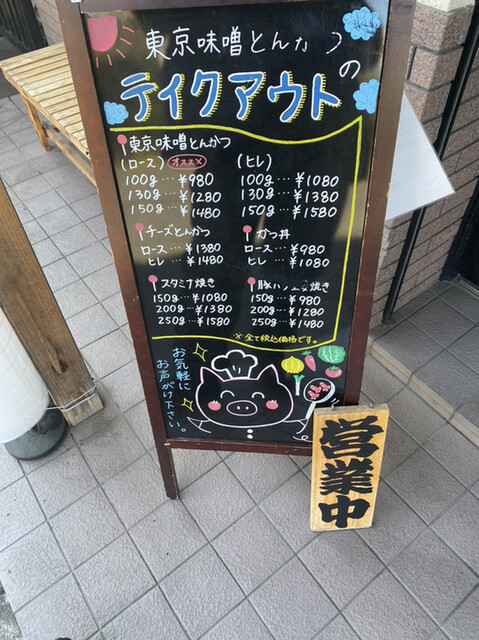 東京味噌とんかつ
の
テイクアウト
東京味噌とんかつ
(ロース) オススメ
100g…¥980
130g…¥1280
150g…¥1480
(ヒレ)
100g…¥1080
130g…¥1380
150g…¥1580
チーズとんかつ
ロース…¥1380
ヒレ…¥1480
かつ丼
ロース…¥980
ヒレ…¥1080
スタミナ焼き
150g…¥1080
200g…¥1380
250g…¥1580
150g…¥980
200g…¥1280
250g…¥1480
※全て税込価格です。
お気軽に
お声がけ下さい。
営業中